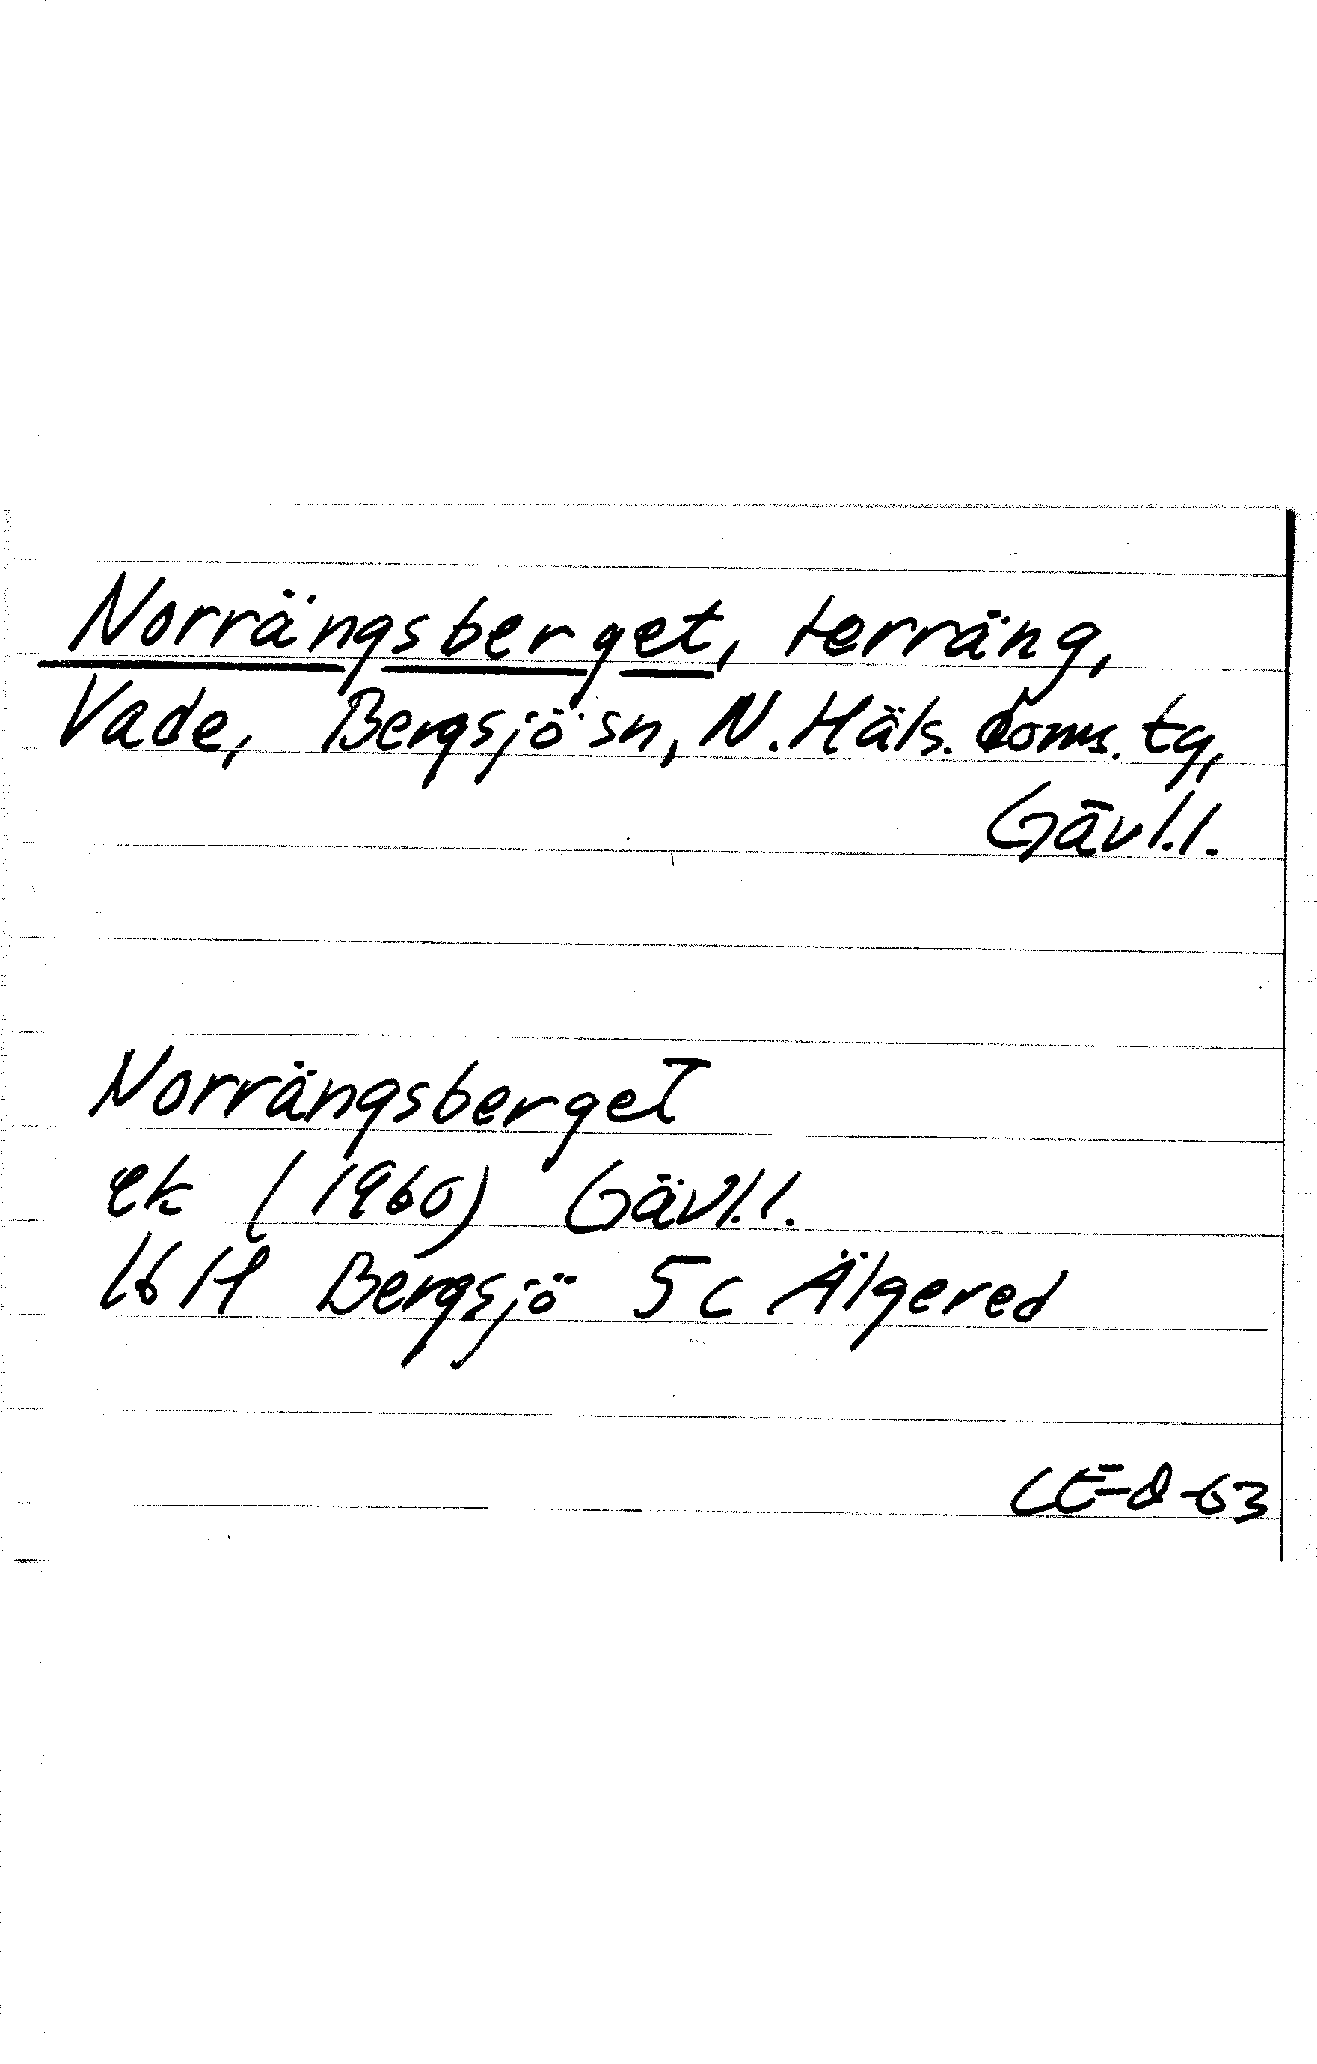 Norrängsberget, terräng,
Vade, Bergsjö sn, N. Häls. doms. tg,
Gävl.l.
Norrängsberget
ek (1960) Gävl.l.
16 H Bergsjö 5c Älgered